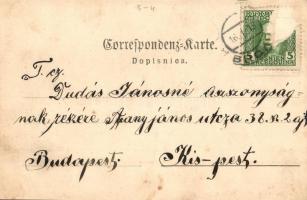 5-4
Correspondenz-Karte.
Dopisnica.
5
T. cz.
Dudás Jánosné asszonyság-
nak, részére Arany jános utcza 38. sz.
Budapest. Kis-pest.